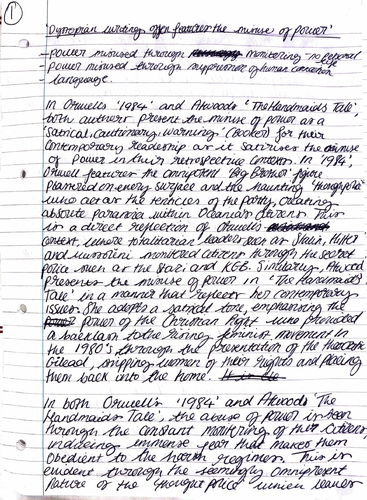 1
'Dystopian writing often features the misuse of power'
- power misused through monitoring - no personal
power misused through suppression of human connection
- language.
In Orwells '1984' and Atwoods 'The Handmaids Tale',
both authors present the misuse of power as a
'satirical, cautionary warning' (Booker) for their
contemporary readership as it satirises the misuse
of power in their retrospective contexts. In '1984',
Orwell features the omnipotent 'Big Brother' figure
plastered on every surface and the haunting 'thoughtpolice'
who act as the tenticles of the party, creating
absolute paranoia within Oceanias citizens. This
is a direct reflection of Orwells
context, where totalitarian leaders such as Stalin, Hitler
and Mussolini monitored citizens through the secret
police such as the Stazi and KGB. Similarly, Atwood
presents the misuse of power in 'The Handmaids
Tale' in a manner that reflects her contemporary
issues. She adopts a satirical tone, emphasising the
power of the Christian Right who provided
a backlash to the feminist movement in
the 1980's through the presentation of the theocratic
Gilead, stripping women of their rights and placing
them back into the home.
In both Orwell's '1984' and Atwoods 'The
Handmaids Tale', the abuse of power is seen
through the constant monitoring of their citizens,
inducing immense fear that makes them
obedient to the harsh regimes. This is
evident through the seemingly omnipresent
nature of the 'thought police' which leaves